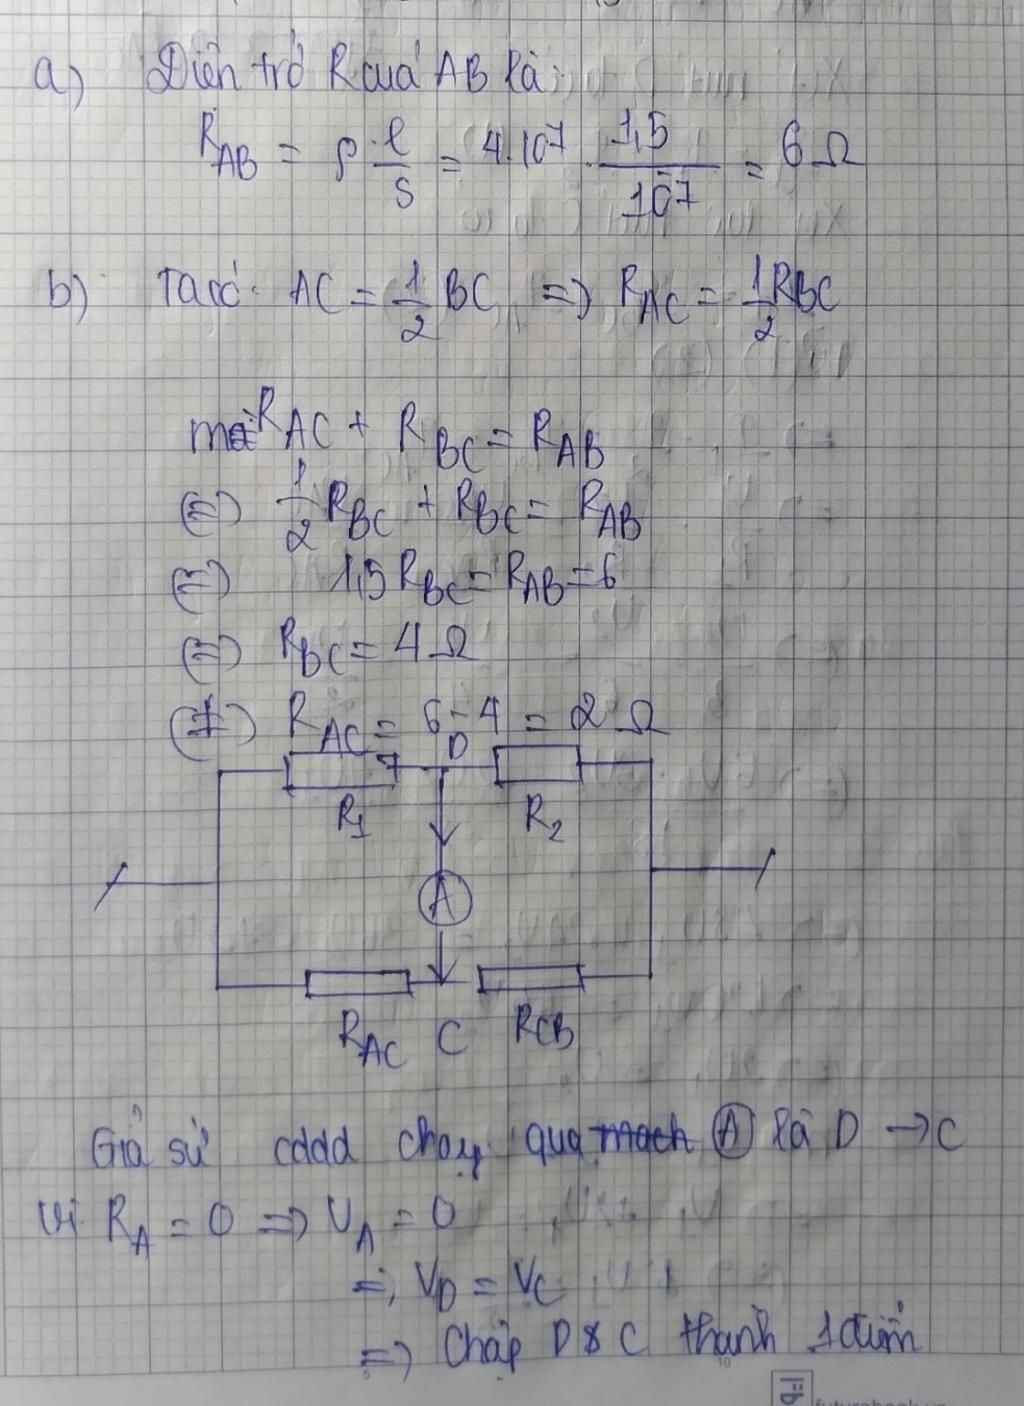 a) Điện trở R của AB là:
R_AB = ρ·l/S = 4.10⁷ . 1,5/10⁻⁷ = 6 Ω
b) Ta có: AC = 1/2 BC => R_AC = 1/2 R_BC
mà R_AC + R_BC = R_AB
(=) 1/2 R_BC + R_BC = R_AB
(=) 1,5 R_BC = R_AB = 6
(=) R_BC = 4 Ω
(≠) R_AC = 6 - 4 = 2 Ω
D
R₁ R₂
A
R_AC C R_CB
Giả sử cđdđ chạy qua mạch (A) là D → C
Vì R_A = 0 => U_A = 0
=> V_D = V_C
=> Chập D & C thành 1 điểm
5 10